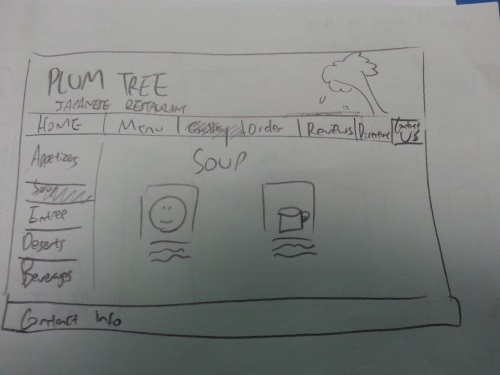 PLUM TREE
JAPANESE RESTAURANT
HOME Menu Gallery Order Reviews Directions Contact US
Appetizers
Soup
Entree
Deserts
Beverages
SOUP
Contact Info